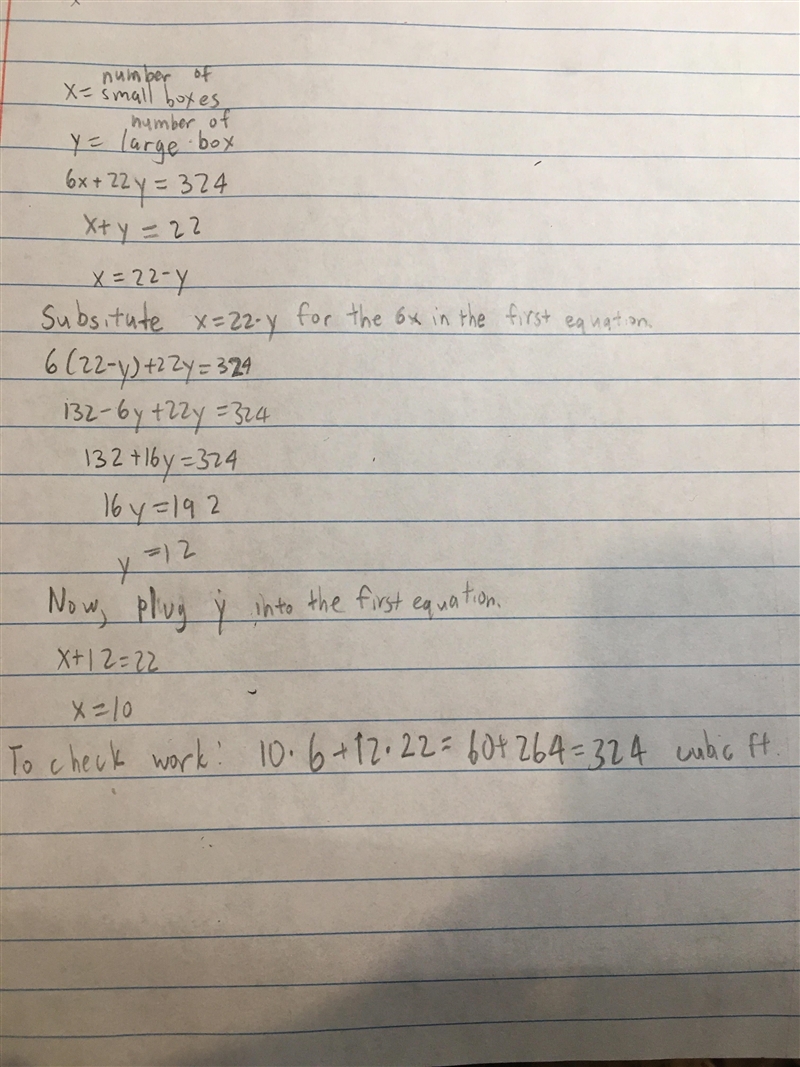 x = number of small boxes
y = number of large box
6x + 22y = 324
x + y = 22
x = 22 - y
Subsitute x = 22 - y for the 6x in the first equation.
6(22-y)+22y=324
132 - 6y + 22y = 324
132 + 16y = 324
16y = 192
y = 12
Now, plug y into the first equation.
x + 12 = 22
x = 10
To check work: 10 · 6 + 12 · 22 = 60 + 264 = 324 cubic ft.